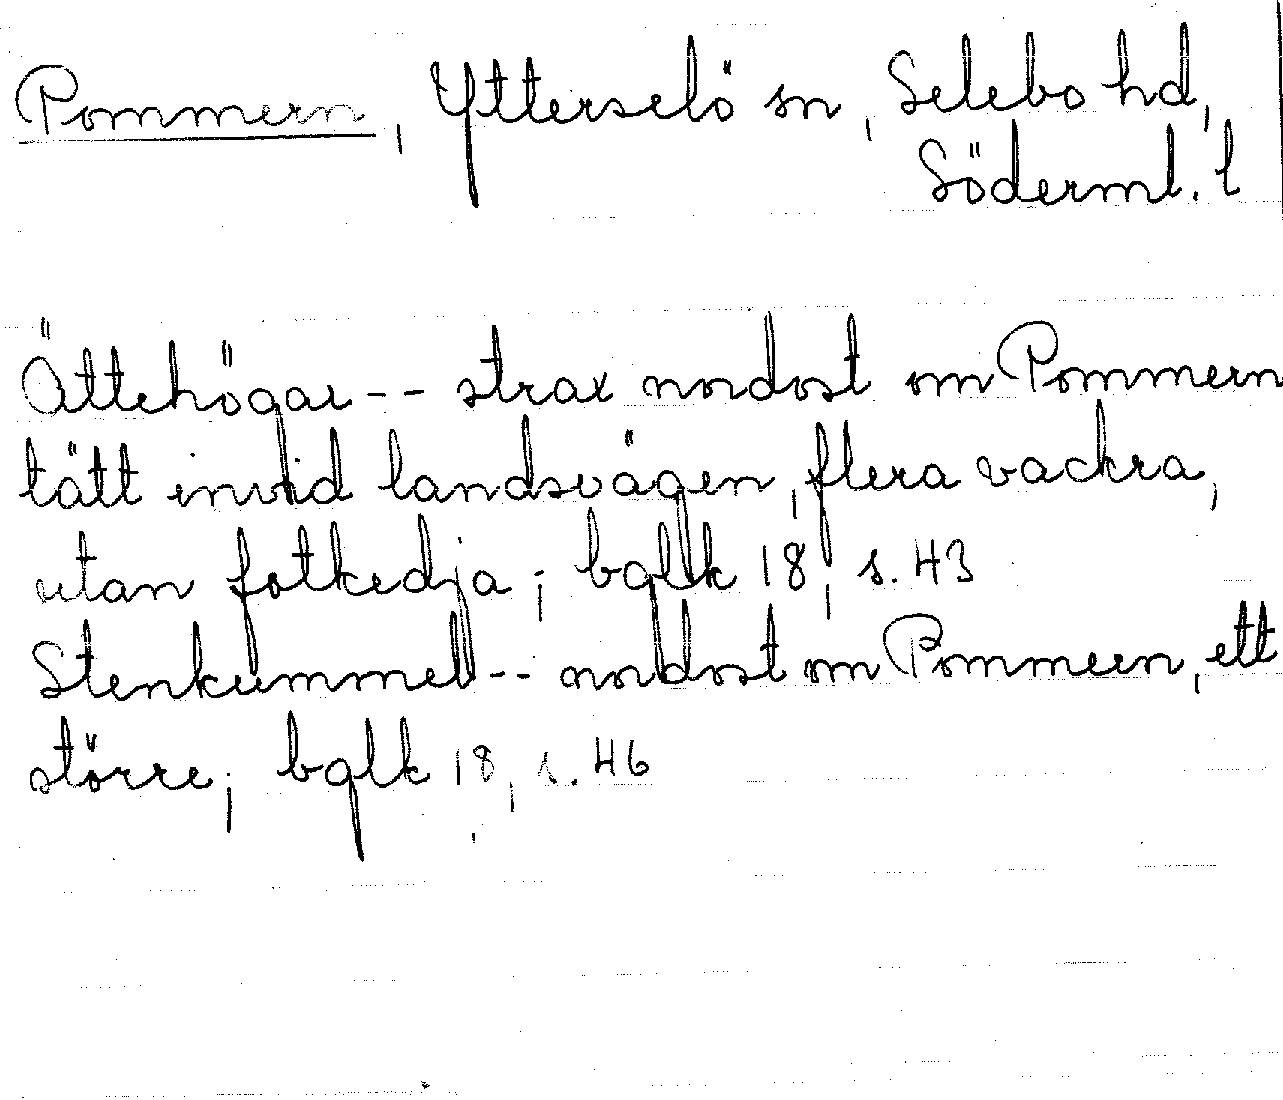 Pommern, Ytterselö sn, Selebo hd,
Söderml. l
Ättehögar-- strax nordost om Pommern
tätt invid landsvägen, flera vackra,
utan fotkedja; bglk 18, s. 43
Stenkummel-- nordost om Pommern, ett
större; bglk 18, s. 46